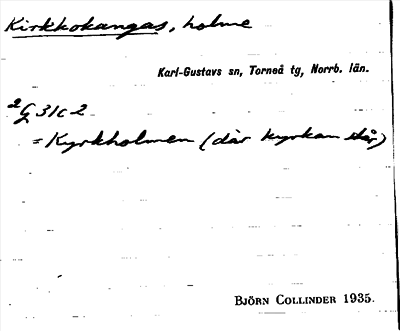 Kirkkokangas, holme
Karl-Gustavs sn, Torneå tg, Norrb. län.
2G 31c2
= Kyrkholmen (där kyrkan står)
BJÖRN COLLINDER 1935.